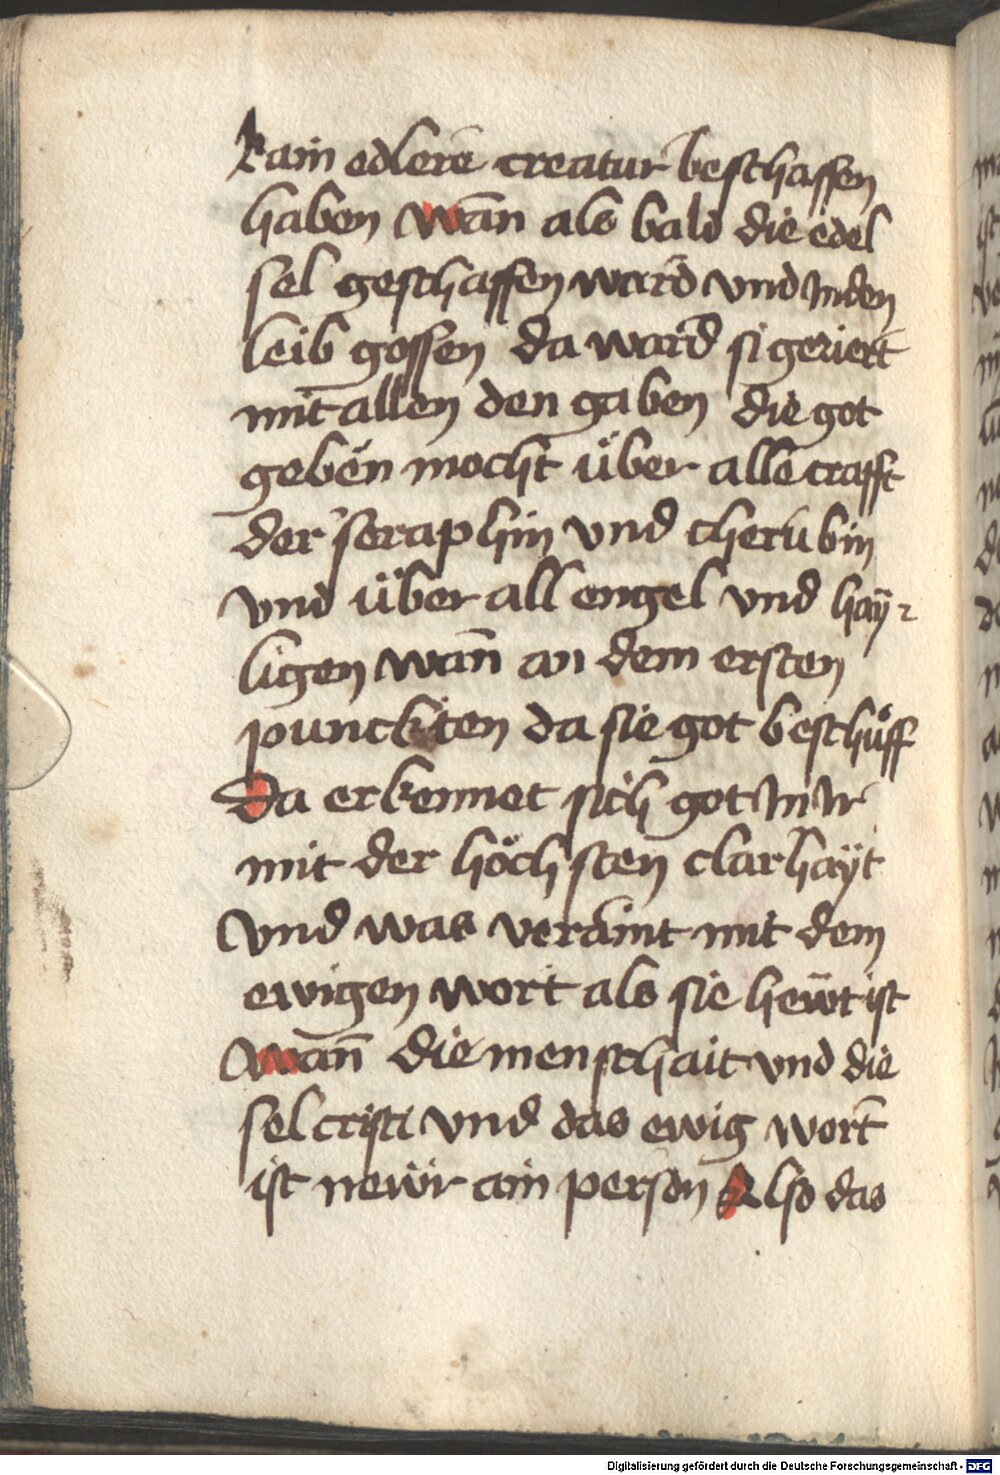 kain edlere creatur beschaffen
haben wan̄ als bald die edel
sel geschaffen ward vnd Inden
leib gossen da ward si geziert
mit allen den gaben die got
geben mocht über alle crafft
der seraphin vnd cherubin
vnd über all engel vnd haÿ-
ligen wan̄ an dem ersten
punckten da sie got beschůff
Da erkennet sich got In Ir
mit der höchsten clarhaÿt
Vnd was veraint mit dem
ewigen wort als sie hewt ist
Wan̄ die menschait vnd die
sel cristi vnd das ewig wort
ist newr ain person Also das
Digitalisierung gefördert durch die Deutsche Forschungsgemeinschaft - DFG